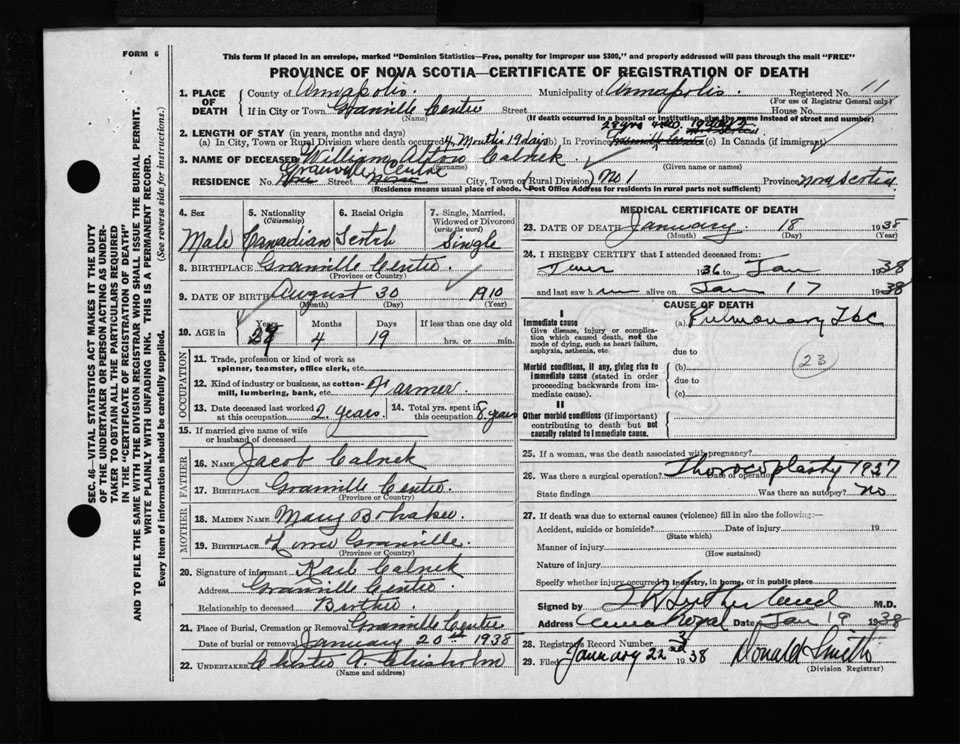 FORM 6
This form if placed in an envelope, marked "Dominion Statistics—Free, penalty for improper use $300," and properly addressed will pass through the mail "FREE"
PROVINCE OF NOVA SCOTIA—CERTIFICATE OF REGISTRATION OF DEATH
SEC. 46—VITAL STATISTICS ACT MAKES IT THE DUTY
OF THE UNDERTAKER OR PERSON ACTING AS UNDER-
TAKER TO OBTAIN ALL THE PARTICULARS REQUIRED
IN THE "CERTIFICATE OF REGISTRATION OF DEATH"
AND TO FILE THE SAME WITH THE DIVISION REGISTRAR WHO SHALL ISSUE THE BURIAL PERMIT.
WRITE PLAINLY WITH UNFADING INK. THIS IS A PERMANENT RECORD.
Every item of information should be carefully supplied. (See reverse side for instructions.)
1. PLACE OF DEATH
County of Annapolis. Municipality of Annapolis. Registered No. 11
(For use of Registrar General only)
If in City or Town Granville Centre Street House No.
(Name) (If death occurred in a hospital or institution, give the name instead of street and number)
2. LENGTH OF STAY (in years, months and days)
(a) In City, Town or Rural Division where death occurred 4 Months 19 days (b) In Province (c) In Canada (if immigrant)
3. NAME OF DECEASED William Alton Calnek
(Surname) (Given name or names)
Granville Centre
RESIDENCE No. Street City, Town or Rural Division No 1 Province Nova Scotia
(Residence means usual place of abode. Post Office Address for residents in rural parts not sufficient)
4. Sex
Male
5. Nationality (Citizenship)
Canadian
6. Racial Origin
7. Single, Married, Widowed or Divorced (write the word)
Single
8. BIRTHPLACE Granville Centre.
(Province or Country)
9. DATE OF BIRTH August 30 1910
(Month) (Day) (Year)
10. AGE in Years Months Days If less than one day old
4 19 hrs. or min.
OCCUPATION
11. Trade, profession or kind of work as
spinner, teamster, office clerk, etc.
12. Kind of industry or business, as cotton-
mill, lumbering, bank, etc. Farmer.
13. Date deceased last worked at this occupation 2 years.
14. Total yrs. spent in this occupation 8 years
15. If married give name of wife
or husband of deceased
FATHER
16. NAME Jacob Calnek
17. BIRTHPLACE Granville Centre.
(Province or Country)
MOTHER
18. MAIDEN NAME Mary Bohaker
19. BIRTHPLACE Lower Granville.
(Province or Country)
20. Signature of informant Karl Calnek
Address Granville Centre
Relationship to deceased Brother.
21. Place of Burial, Cremation or Removal Granville Centre
Date of burial or removal January 20th 1938
22. UNDERTAKER Chisholm
(Name and address)
MEDICAL CERTIFICATE OF DEATH
23. DATE OF DEATH January 18 1938
(Month) (Day) (Year)
24. I HEREBY CERTIFY that I attended deceased from:
1936 to Jan 1938
and last saw him alive on Jan 17 1938
CAUSE OF DEATH
I
Immediate cause
Give disease, injury or complica-
tion which caused death, not the
mode of dying, such as heart failure,
asphyxia, asthenia, etc.
(a) Pulmonary Tbc
due to
23
Morbid conditions, if any, giving rise to
immediate cause (stated in order
proceeding backwards from im-
mediate cause).
(b)
due to
(c)
II
Other morbid conditions (if important)
contributing to death but not
causally related to immediate cause.
25. If a woman, was the death associated with pregnancy?
26. Was there a surgical operation? Thorocoplasty 1937
Date of operation
State findings Was there an autopsy? No
27. If death was due to external causes (violence) fill in also the following:—
Accident, suicide or homicide? Date of injury 19
(State which)
Manner of injury
(How sustained)
Nature of injury
Specify whether injury occurred in industry, in home, or in public place
Signed by M.D.
Address Date Jan 19 1938
28. Registrar's Record Number 3
29. Filed January 22nd 1938 Donald Smith
(Division Registrar)